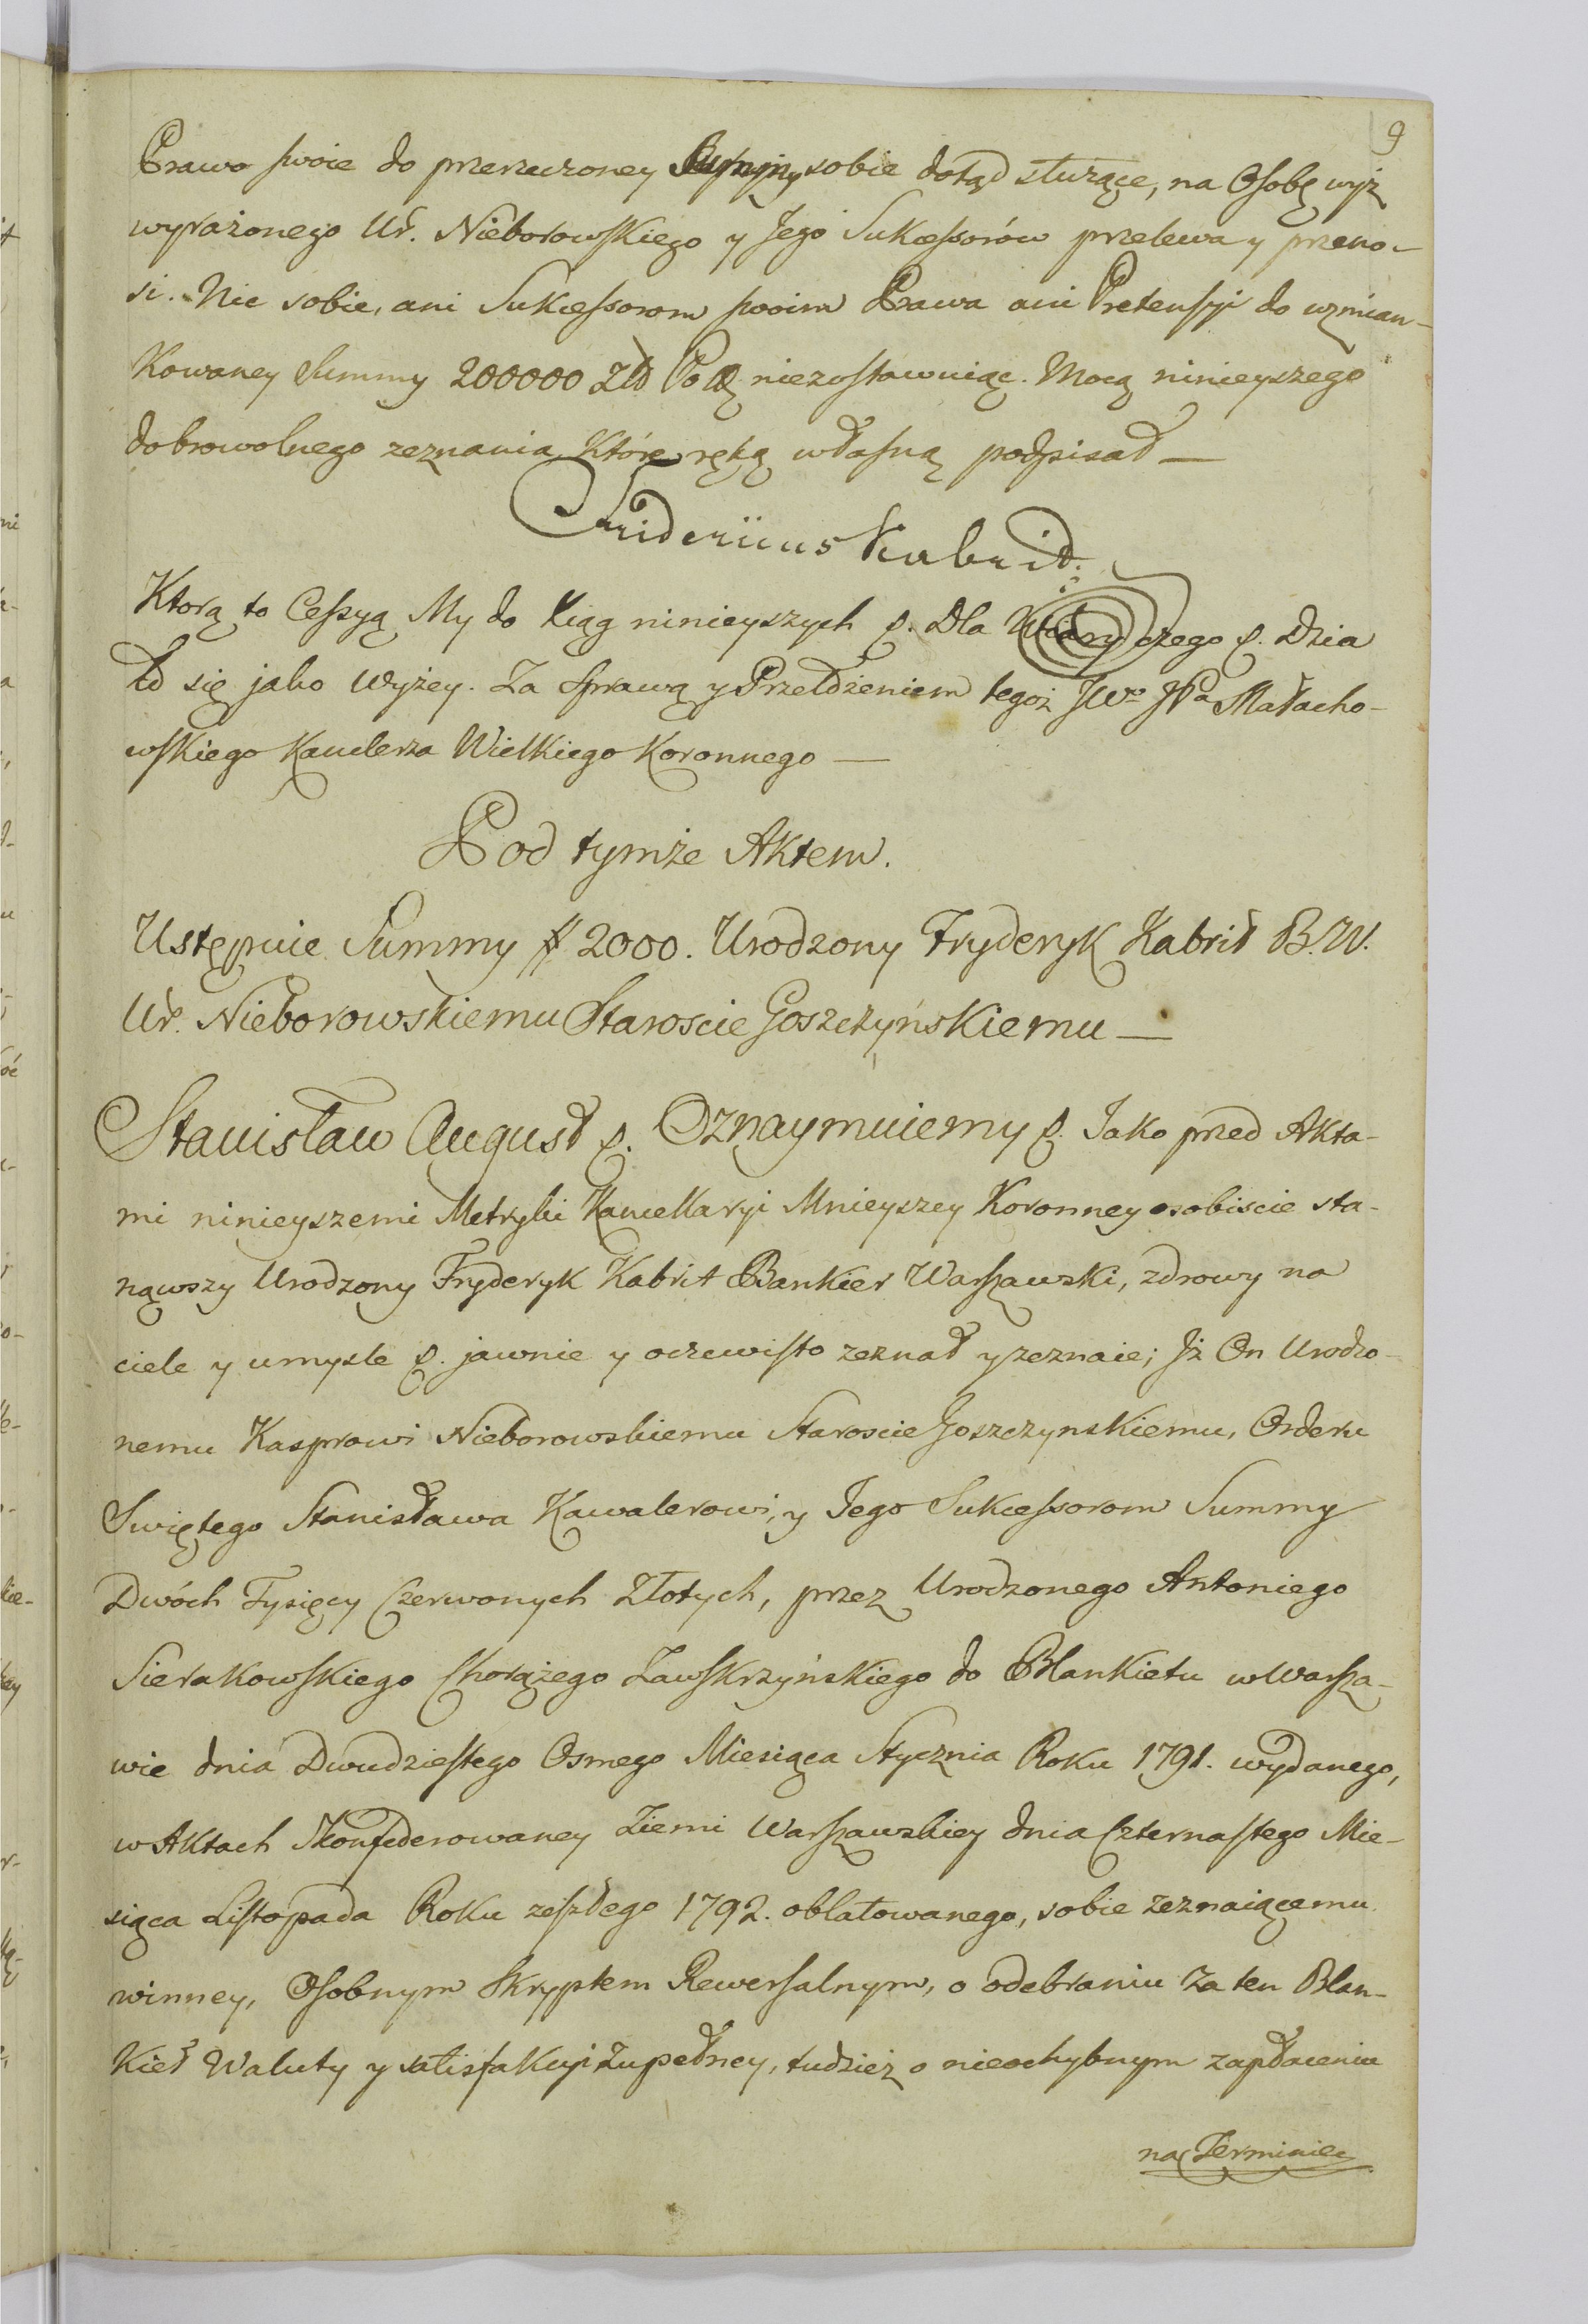 9
Prawo swoie do przerzeczoney Summy sobie dotąd służące, na Osobę wyż
wyrażonego Ur. Nieborowskiego y Jego Sukcessorów przelewa y przeno-
si. Nic sobie, ani Sukcessorom swoim Prawa ani Pretensyi do wzmian-
kowaney Summy 200000 Zło Pol niezostawuiąc. Mocą ninieyszego
dobrowolnego zeznania, które ręką własną podpisał —
Fridericus Kabrit.
Ktorą to Cessyą My do Xiąg ninieyszych &. Dla Wiary czego &. Dzia
ło się jako wyżey. Za sprawą y Przełożeniem tegoż JWo JPa Małacho-
wskiego Kanclerza Wielkiego Koronnego —
Pod tymże Aktem.
Ustępuie Summy # 2000. Urodzony Fryderyk Kabrit B. W.
Ur. Nieborowskiemu Staroscie Goszczyńskiemu —
Stanisław August &. Oznaymuiemy &. Jako przed Akta-
mi ninieyszemi Metryki Kancellaryi Mnieyszey Koronney osobiscie sta-
nąwszy Urodzony Fryderyk Kabrit Bankier Warszawski, zdrowy na
ciele y umysle &. jawnie y oczewisto zeznał y zeznaie; Jż On Urodzo-
nemu Kasprowi Nieborowskiemu Staroscie Goszczynskiemu, Orderu
Swiętego Stanisława Kawalerowi, y Jego Sukcessorom Summy
Dwóch Tysięcy Czerwonych Złotych, przez Urodzonego Antoniego
Sierakowskiego Chorążego Zawskrzyńskiego do Blankietu w Warsza-
wie dnia Dwudziestego Osmego Miesiąca Stycznia Roku 1791. wydanego,
w Aktach Skonfederowaney Ziemi Warszawskiey dnia Czternastego Mie-
siąca Listopada Roku zeszłego 1792. oblatowanego, sobie zeznaiącemu
winney, Osobnym Skryptem Rewersalnym, o odebraniu za ten Blan-
kiet Waluty y satisfakcyi zupełney, tudzież o nieochybnym zapłaceniu
na Terminie